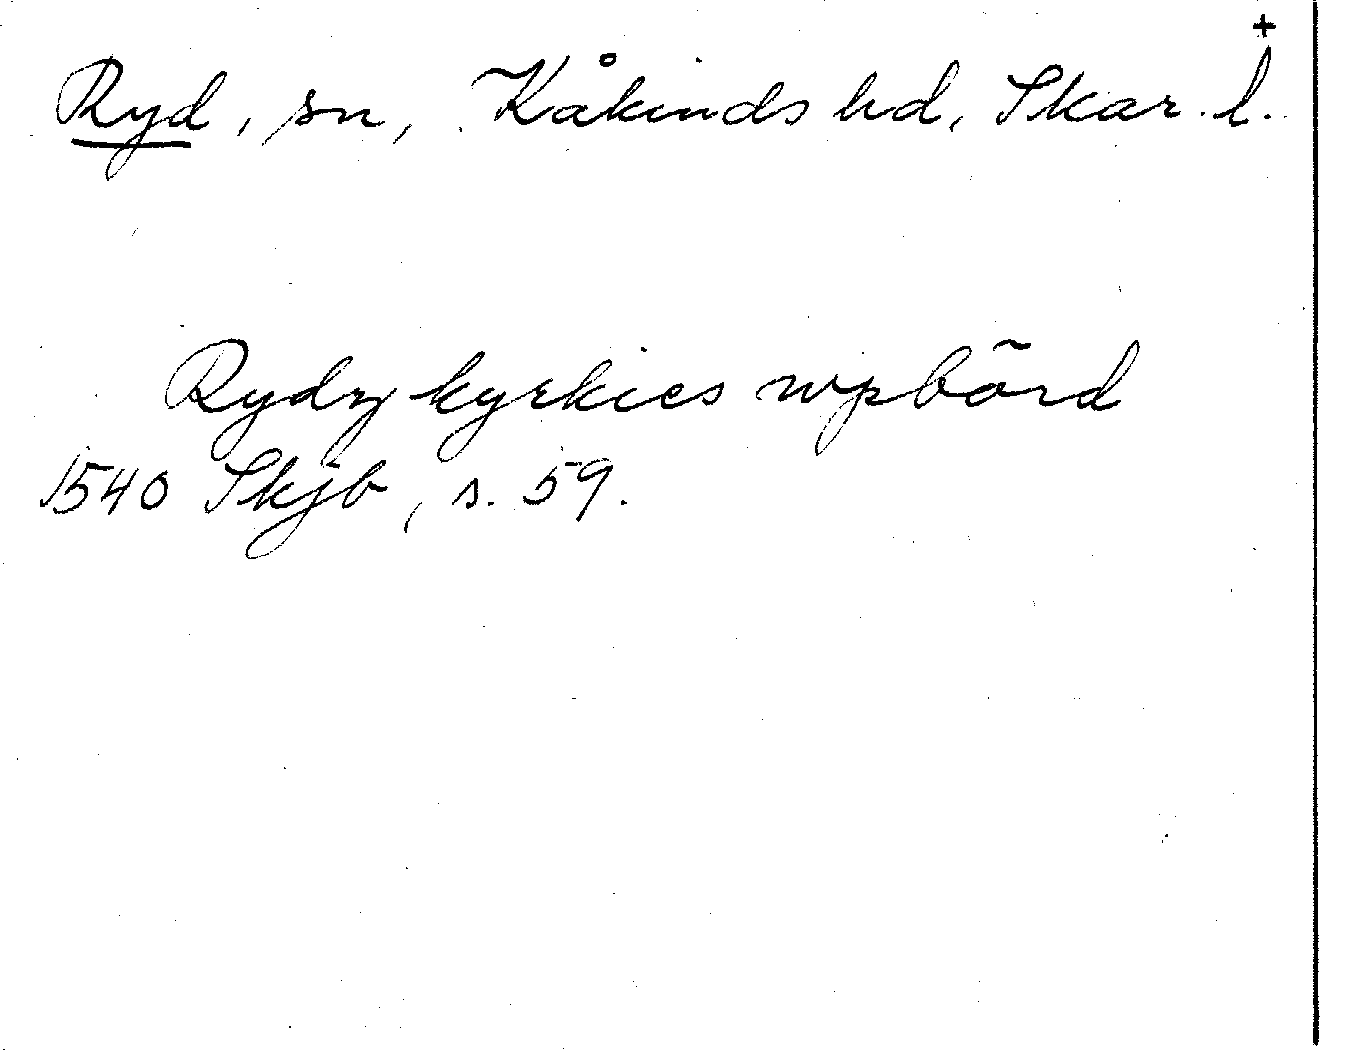 +
Ryd, sn, Kåkinds hd, Skar. l.
Rydz kyrkies wpbõrd
1540 Skjb, s. 59.